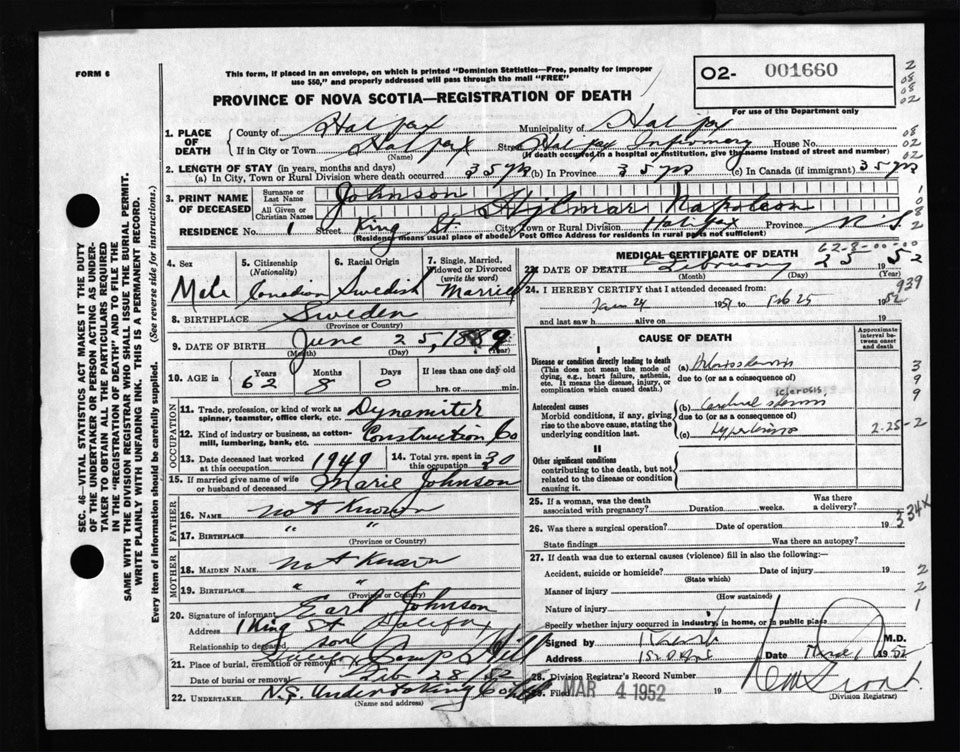 FORM 6
This form, if placed in an envelope, on which is printed "Dominion Statistics—Free, penalty for improper
use $50," and properly addressed will pass through the mail "FREE"
O2- 001660
For use of the Department only
PROVINCE OF NOVA SCOTIA—REGISTRATION OF DEATH
2
08
08
02
1. PLACE OF DEATH County of Halifax Municipality of Halifax
If in City or Town Halifax Street Halifax Infirmary House No.
(Name) (If death occurred in a hospital or institution, give the name instead of street and number)
08
02
02
2. LENGTH OF STAY (in years, months and days)
(a) In City, Town or Rural Division where death occurred 35 yrs (b) In Province 35 yrs (c) In Canada (if immigrant) 35 yrs
3. PRINT NAME OF DECEASED
Surname or Last Name Johnson
All Given or Christian Names Hjlmar Napoleon
RESIDENCE No. 1 Street King St. City, Town or Rural Division Halifax Province N.S.
(Residence means usual place of abode. Post Office Address for residents in rural parts not sufficient)
4. Sex
Male
5. Citizenship
(Nationality)
Canadian
6. Racial Origin
Swedish
7. Single, Married, Widowed or Divorced
(write the word)
Married
8. BIRTHPLACE Sweden
(Province or Country)
9. DATE OF BIRTH June 25, 1889
(Month) (Day) (Year)
10. AGE in Years Months Days If less than one day old
62 8 0 hrs. or min.
OCCUPATION
11. Trade, profession, or kind of work as spinner, teamster, office clerk, etc. Dynamiter
12. Kind of industry or business, as cotton-mill, lumbering, bank, etc. Construction Co
13. Date deceased last worked at this occupation 1949
14. Total yrs. spent in this occupation 30
15. If married give name of wife or husband of deceased Marie Johnson
FATHER
16. NAME Not Known
17. BIRTHPLACE " "
(Province or Country)
MOTHER
18. MAIDEN NAME Not Known
19. BIRTHPLACE " "
(Province or Country)
20. Signature of informant Earl Johnson
Address 1 King St Halifax
Relationship to deceased son
21. Place of burial, cremation or removal Camp Hill
Date of burial or removal Feb 28/52
22. UNDERTAKER N.S. Undertaking Co
(Name and address)
MEDICAL CERTIFICATE OF DEATH
62-8-00-00-00
23. DATE OF DEATH February 25 1952
(Month) (Day) (Year)
24. I HEREBY CERTIFY that I attended deceased from:
Jan 24 195 to Feb 25 1952
and last saw h alive on 19
939
CAUSE OF DEATH
Approximate interval between onset and death
I
Disease or condition directly leading to death
(This does not mean the mode of dying, e.g., heart failure, asthenia, etc. It means the disease, injury, or complication which caused death.)
(a)
due to (or as a consequence of)
sclerosis,
Antecedent causes
Morbid conditions, if any, giving rise to the above cause, stating the underlying condition last.
(b) Cerebral
due to (or as a consequence of)
(c)
3
9
9
2-25-2
II
Other significant conditions
contributing to the death, but not related to the disease or condition causing it.
25. If a woman, was the death associated with pregnancy? Duration weeks. Was there a delivery?
334X
26. Was there a surgical operation? Date of operation 19
State findings Was there an autopsy?
27. If death was due to external causes (violence) fill in also the following:—
Accident, suicide or homicide? Date of injury 19
(State which)
Manner of injury
(How sustained)
Nature of injury
2
2
1
Specify whether injury occurred in industry, in home, or in public place
Signed by M.D.
Address Date 1952
28. Division Registrar's Record Number
29. Filed MAR 4 1952
(Division Registrar)
SEC. 46—VITAL STATISTICS ACT MAKES IT THE DUTY
OF THE UNDERTAKER OR PERSON ACTING AS UNDER-
TAKER TO OBTAIN ALL THE PARTICULARS REQUIRED
IN THE "REGISTRATION OF DEATH" AND TO FILE THE
SAME WITH THE DIVISION REGISTRAR WHO SHALL ISSUE THE BURIAL PERMIT.
WRITE PLAINLY WITH UNFADING INK. THIS IS A PERMANENT RECORD.
Every item of information should be carefully supplied. (See reverse side for instructions.)